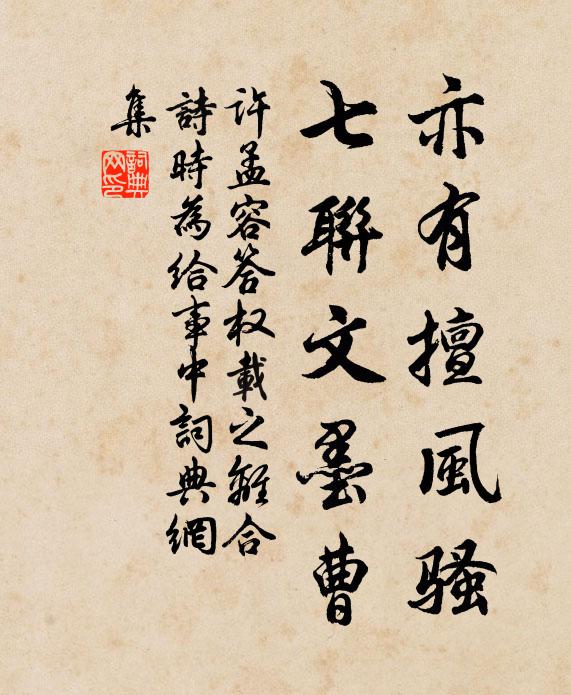 亦有擅風騷
七聯文墨曹
许孟容答权載之離合
詩時為给事中詞典網
集
詞典网印